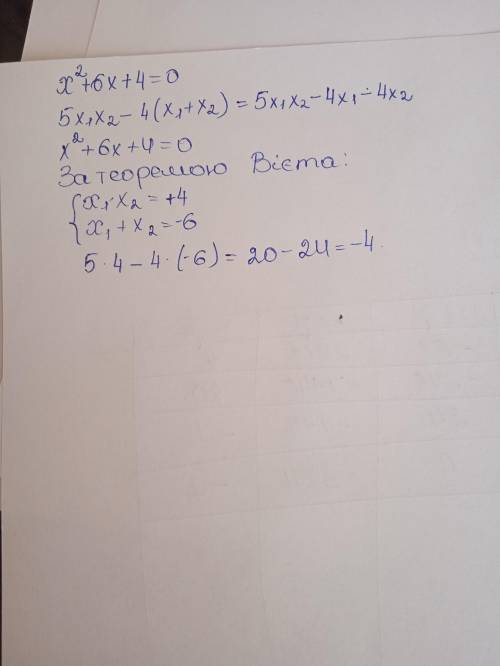 x²+6x+4=0
5x₁x₂-4(x₁+x₂)=5x₁x₂-4x₁-4x₂
x²+6x+4=0
За теоремою Вієта:
{x₁·x₂=+4
{x₁+x₂=-6
5·4-4·(-6)=20-24=-4.